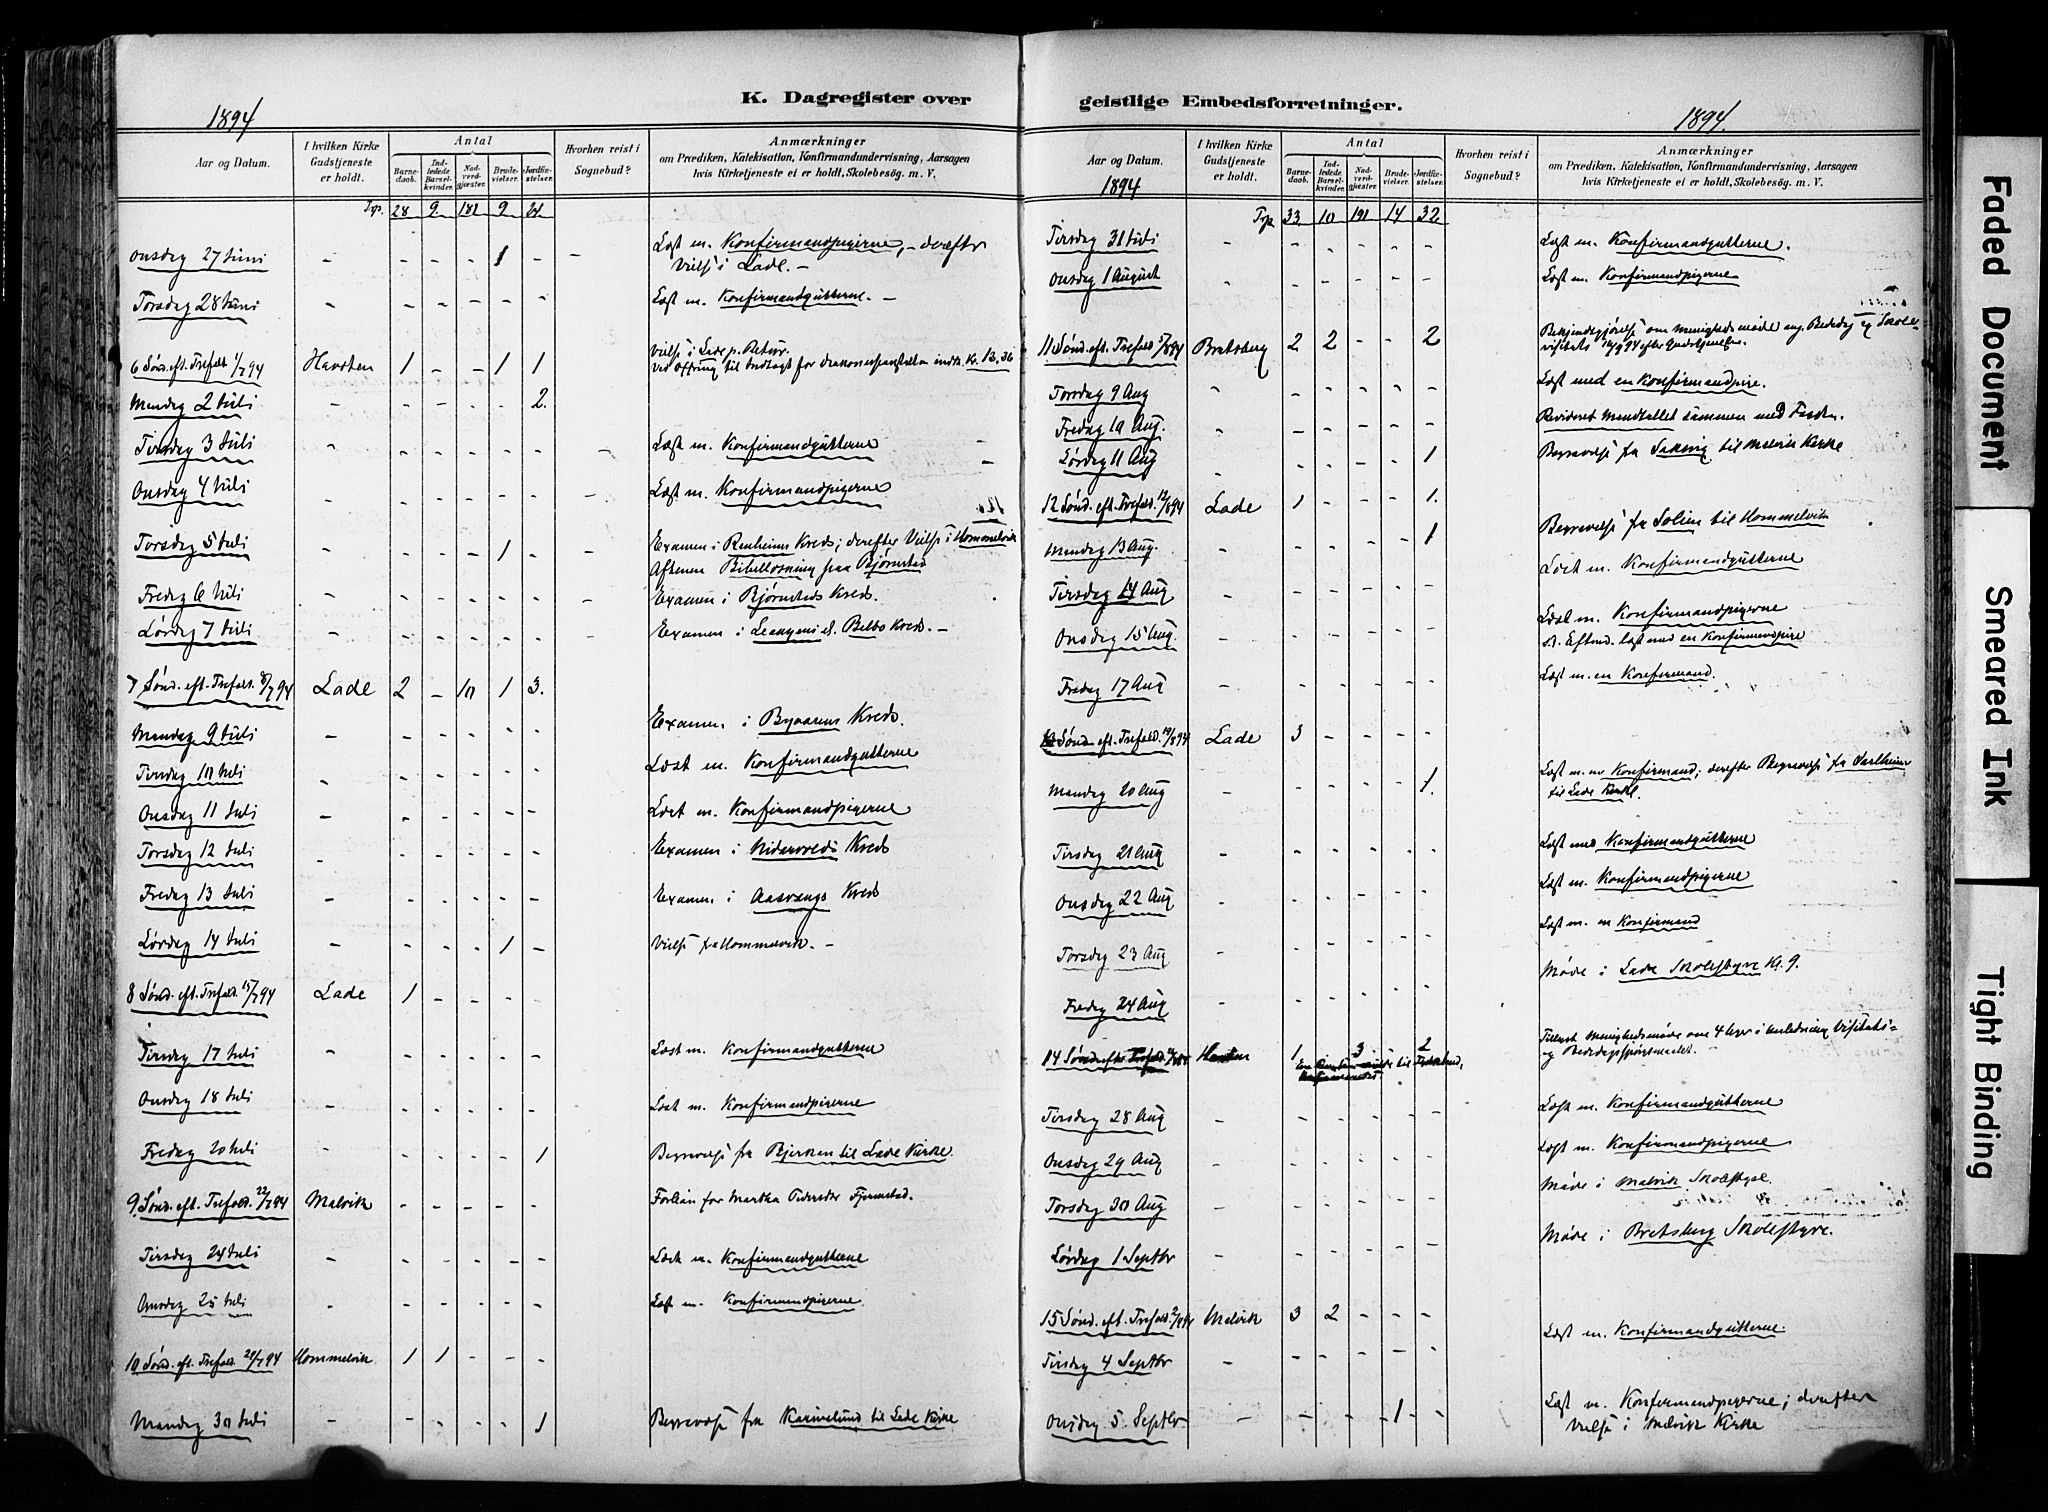 K. Dagregister over
1894
Aar og Datum.
I hvilken Kirke Gudstjeneste er holdt.
Antal
Barnedaab.
Indledede Barselkvinder.
Nadverdgjæster.
Brudevielser.
Jordfæstelser.
Hvorhen reist i Sognebud?
Anmærkninger
om Prædiken, Katekisation, Konfirmandundervisning, Aarsagen
hvis Kirketjeneste ei er holdt, Skolebesøg. m. V.
Trp. 28 9. 181 9.
Onsdag 27 Juni - - - - 1 - - Læst m. Konfirmandpigerne, - derefter
Vielse i Lade. -
Torsdag 28 Juni - - - - - - Læst m. Konfirmandgutterne. -
6 Sønd. eft. Trefold. 1/7 94 Havsten 1 - - 1 1 Vielse i Lade p. Retur.
Ved Offring til Indtægt for indk. Kr. 13,36
Mandag 2 Juli - - - - - 2.
Tirsdag 3 Juli - - - - - - - Læst m. Konfirmandgutterne
Onsdag 4 Juli - - - - - - - Læst m. Konfirmandpigerne
Torsdag 5 Juli - - - - 1 - - Examen i Renheims Kreds; derefter Vielse i Hommelvik
Aftenen Bibellæsning paa Bjørnstad
Fredag 6 Juli - - - - - - - Examen i Bjørnstads Kreds.
Lørdag 7 Juli - - - - - - - Examen i Leangens el. Belbo Kreds. -
7 Sønd. eft. Trefold. 8/7 94 Lade 2 - 10 1 3.
Mandag 9 Juli - - - - - - Examen i Byaasens Kreds.
Tirsdag 10 Juli - - - - - - Læst m. Konfirmandgutterne
Onsdag 11 Juli - - - - - - Læst m. Konfirmandpigerne
Torsdag 12 Juli - - - - - - Examen i Kreds
Fredag 13 Juli - - - - - - Examen i Aasvangs Kreds
Lørdag 14 Juli - - - - 1 - Vielse fra Hommelvik. -
8 Sønd. eft. Trefold. 15/7 94 Lade 1 - - - -
Tirsdag 17 Juli - - - - - - Læst m. Konfirmandgutterne
Onsdag 18 Juli - - - - - - Læst m. Konfirmandpigerne
Fredag 20 Juli - - - - - 1 Begravelse fra Bjerken til Lade Kirke.
9. Sønd. eft. Trefold. 22/7 94 Malvik - - - - - Forbøn for Martha Pedersdtr Fjermstad.
Tirsdag 24 Juli - - - - - - Læst m. Konfirmandgutterne
Onsdag 25 Juli - - - - - - Læst m. Konfirmandpigerne.
10 Sønd. eft. Trefold. 29/7 94 Hommelvik 1 1 - - -
Mandag 30 Juli - - - - - 1 Begravelse fra Karinelund til Lade Kirke
geistlige Embedsforretninger.
1894.
Aar og Datum.
1894
I hvilken Kirke Gudstjeneste er holdt.
Antal
Barnedaab.
Indledede Barselkvinder.
Nadverdgjæster.
Brudevielser.
Jordfæstelser.
Hvorhen reist i Sognebud?
Anmærkninger
om Prædiken, Katekisation, Konfirmandundervisning, Aarsagen
hvis Kirketjeneste ei er holdt, Skolebesøg. m. V.
Trp 33 10 191 14 32
Tirsdag 31 Juli - - - - - - Læst m. Konfirmandgutterne.
Onsdag 1 August - - - - - - Læst m. Konfirmandpigerne
11 Sønd. eft. Trefold. 5/8 94 Bratsberg 2 2 - - 2 Bekjendtgjørelse om Menighedsmøde ang. Bededag og Skole-
visitats 10/9 94 efter Gudstjenesten.
Torsdag 9 Aug - - - - - - Læst med en Konfirmandpige.
Fredag 10 Aug. - - - - - - Revideret Mandtallet sammen med
Lørdag 11 Aug - - - - - 1 Begravelse fra Saxvig til Malvik Kirke
12 Sønd. eft. Trefold. 12/8 94 Lade 1 - - - 1.
Mandag 13 Aug. - - - - - 1 Begravelse fra Solien til Hommelvik
Tirsdag 14 Aug - - - - - - Læst m. Konfirmandgutterne
Onsdag 15 Aug. - - - - - - Læst m. Konfirmandpigerne
s. Efterm. læst med en Konfirmandpige
Fredag 17 Aug - - - - - - Læst m. en Konfirmand.
13 Sønd. eft. Trefold. 19/8 94 Lade 3 - - - -
Mandag 20 Aug - - - - - 1. Læst m. en Konfirmand; derefter Begravelse fra Karlheim
til Lade Kirke.
Tirsdag 21 Aug - - - - - - Læst med Konfirmandgutterne
Onsdag 22 Aug - - - - - - Læst m. Konfirmandpigerne
Torsdag 23 Aug - - - - - - Læst m. en Konfirmand
Fredag 24 Aug - - - - - - Møde i Lade Skolestyre Kl. 9.
14 Sønd. efter Trefold. Havsten 1 3 2 Tillyst Menighedsmøde om 4 Uger i Anledning Visitats-
og Bededagsspørsmaalet.
Tirsdag 28 Aug - - - - - Læst m. Konfirmandgutterne
Onsdag 29 Aug - - - - - - Læst m. Konfirmandpigerne
Torsdag 30 Aug - - - - - - Møde i Malvik Skolestyre.
Lørdag 1 Septbr - - - - - - Møde i Bratsberg Skolestyre.
15 Sønd. eft. Trefold. 2/9 94 Malvik 3 2 - - -
Tirsdag 4 Septbr - - - - - - Læst m. Konfirmandgutterne.
Onsdag 5. Septbr - - - - 1 - Læst m. Konfirmandpigerne; derefter
Vielse i Malvik Kirke
Faded Document
Smeared Ink
Tight Binding